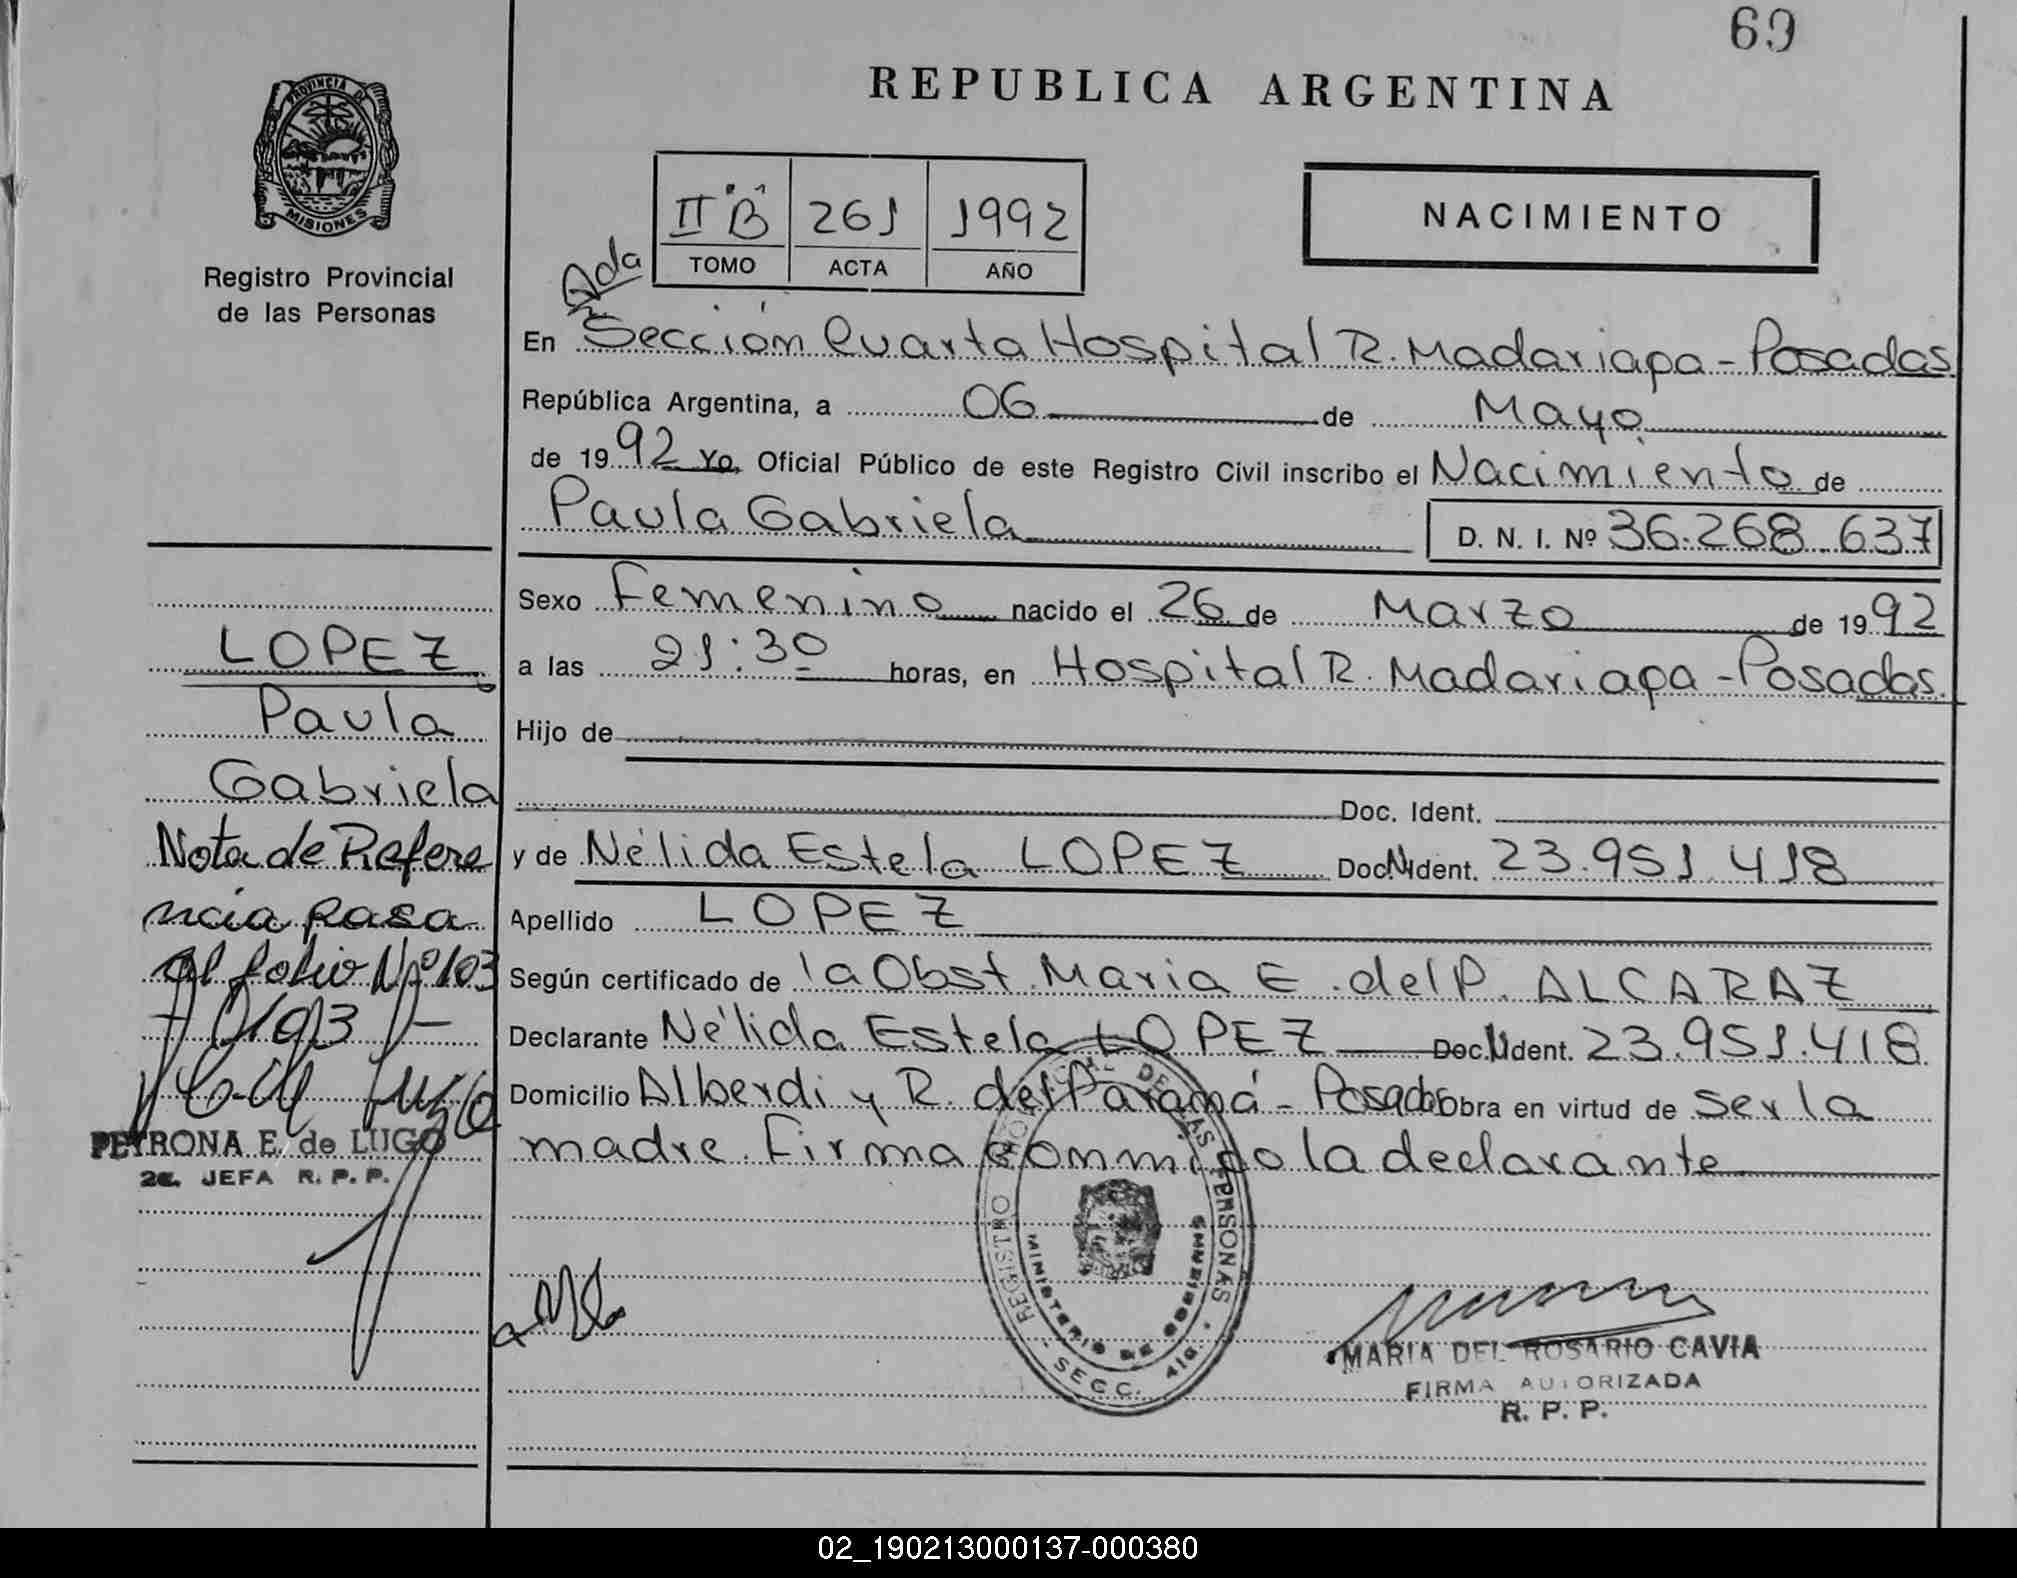 69
REPUBLICA ARGENTINA
PROVINCIA DE
MISIONES
Registro Provincial
de las Personas
II "B" 261 1992
TOMO ACTA AÑO
NACIMIENTO
Ada
En Sección Cuarta Hospital R. Madariaga - Posadas.
República Argentina, a 06 de Mayo
de 1992 Yo, Oficial Público de este Registro Civil inscribo el Nacimiento de
Paula Gabriela D. N. I. Nº 36.268.637
Sexo Femenino nacido el 26 de Marzo de 1992
a las 21:30 horas, en Hospital R. Madariaga - Posadas.
Hijo de
Doc. Ident.
y de Nélida Estela LOPEZ Doc. Ident. 23.951.418
Apellido LOPEZ
Según certificado de la Obst. Maria E. del P. ALCARAZ
Declarante Nélida Estela LOPEZ Doc. Ident. 23.951.418
Domicilio Alberdi y R. del Paraná - Posadas Obra en virtud de ser la
madre. Firma conmigo la declarante
LOPEZ
Paula
Gabriela
Nota de Refere
ncia pasa
al folio Nº 103
PETRONA E. de LUGO
2a. JEFA R. P. P.
REGISTRO PROVINCIAL DE LAS PERSONAS
MINISTERIO DE GOBIERNO
SECC. 4ta.
MARIA DEL ROSARIO CAVIA
FIRMA AUTORIZADA
R. P. P.
02_190213000137-000380